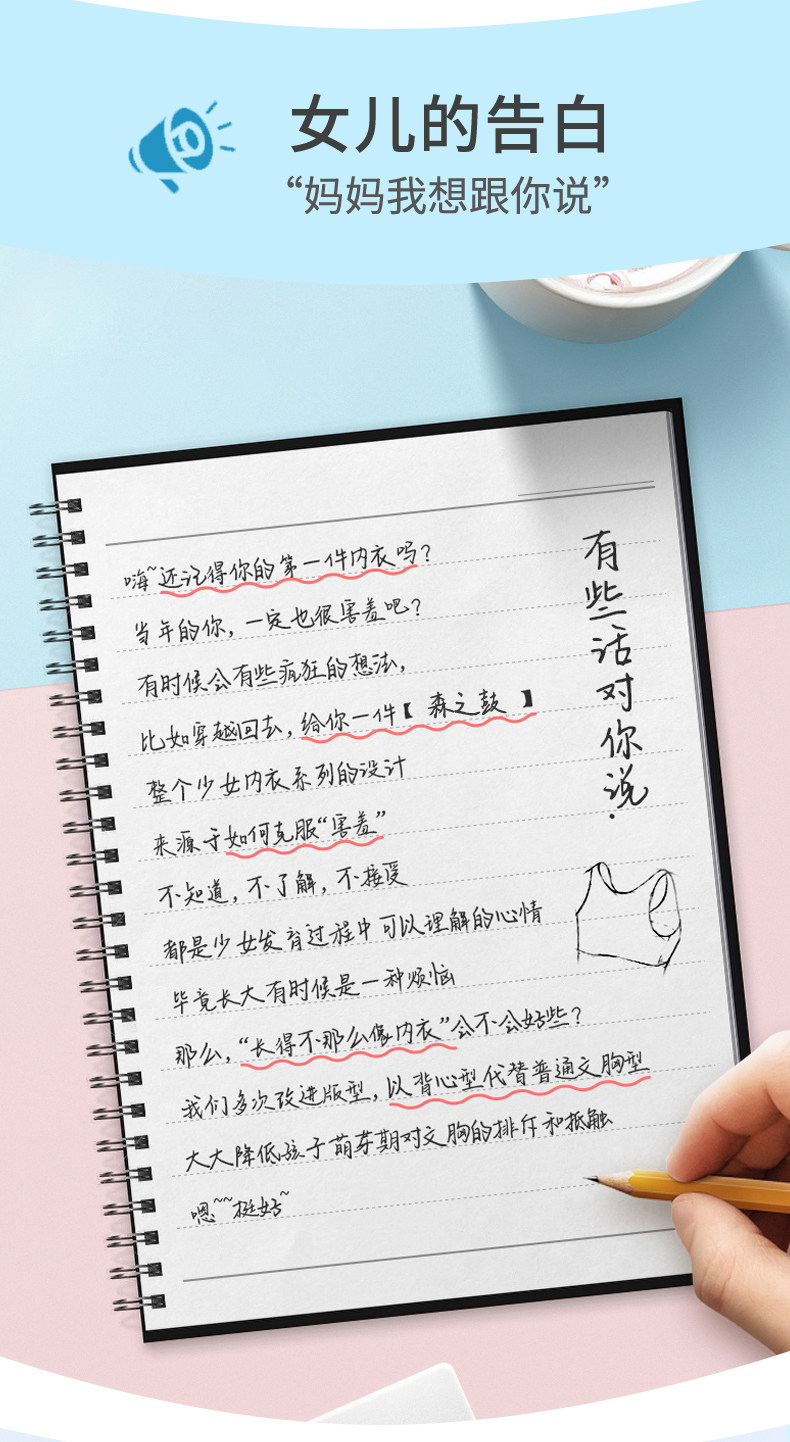 女儿的告白
“妈妈我想跟你说”
有些话对你说.
嗨~还记得你的第一件内衣吗?
当年的你,一定也很害羞吧?
有时候会有些疯狂的想法,
比如穿越回去,给你一件【森之鼓】
整个少女内衣系列的设计
来源于如何克服“害羞”
不知道,不了解,不接受
都是少女发育过程中可以理解的心情
毕竟长大有时候是一种烦恼
那么,“长得不那么像内衣”会不会好些?
我们多次改进版型,以背心型代替普通文胸型
大大降低孩子萌芽期对文胸的排斥和抵触
嗯~~挺好~